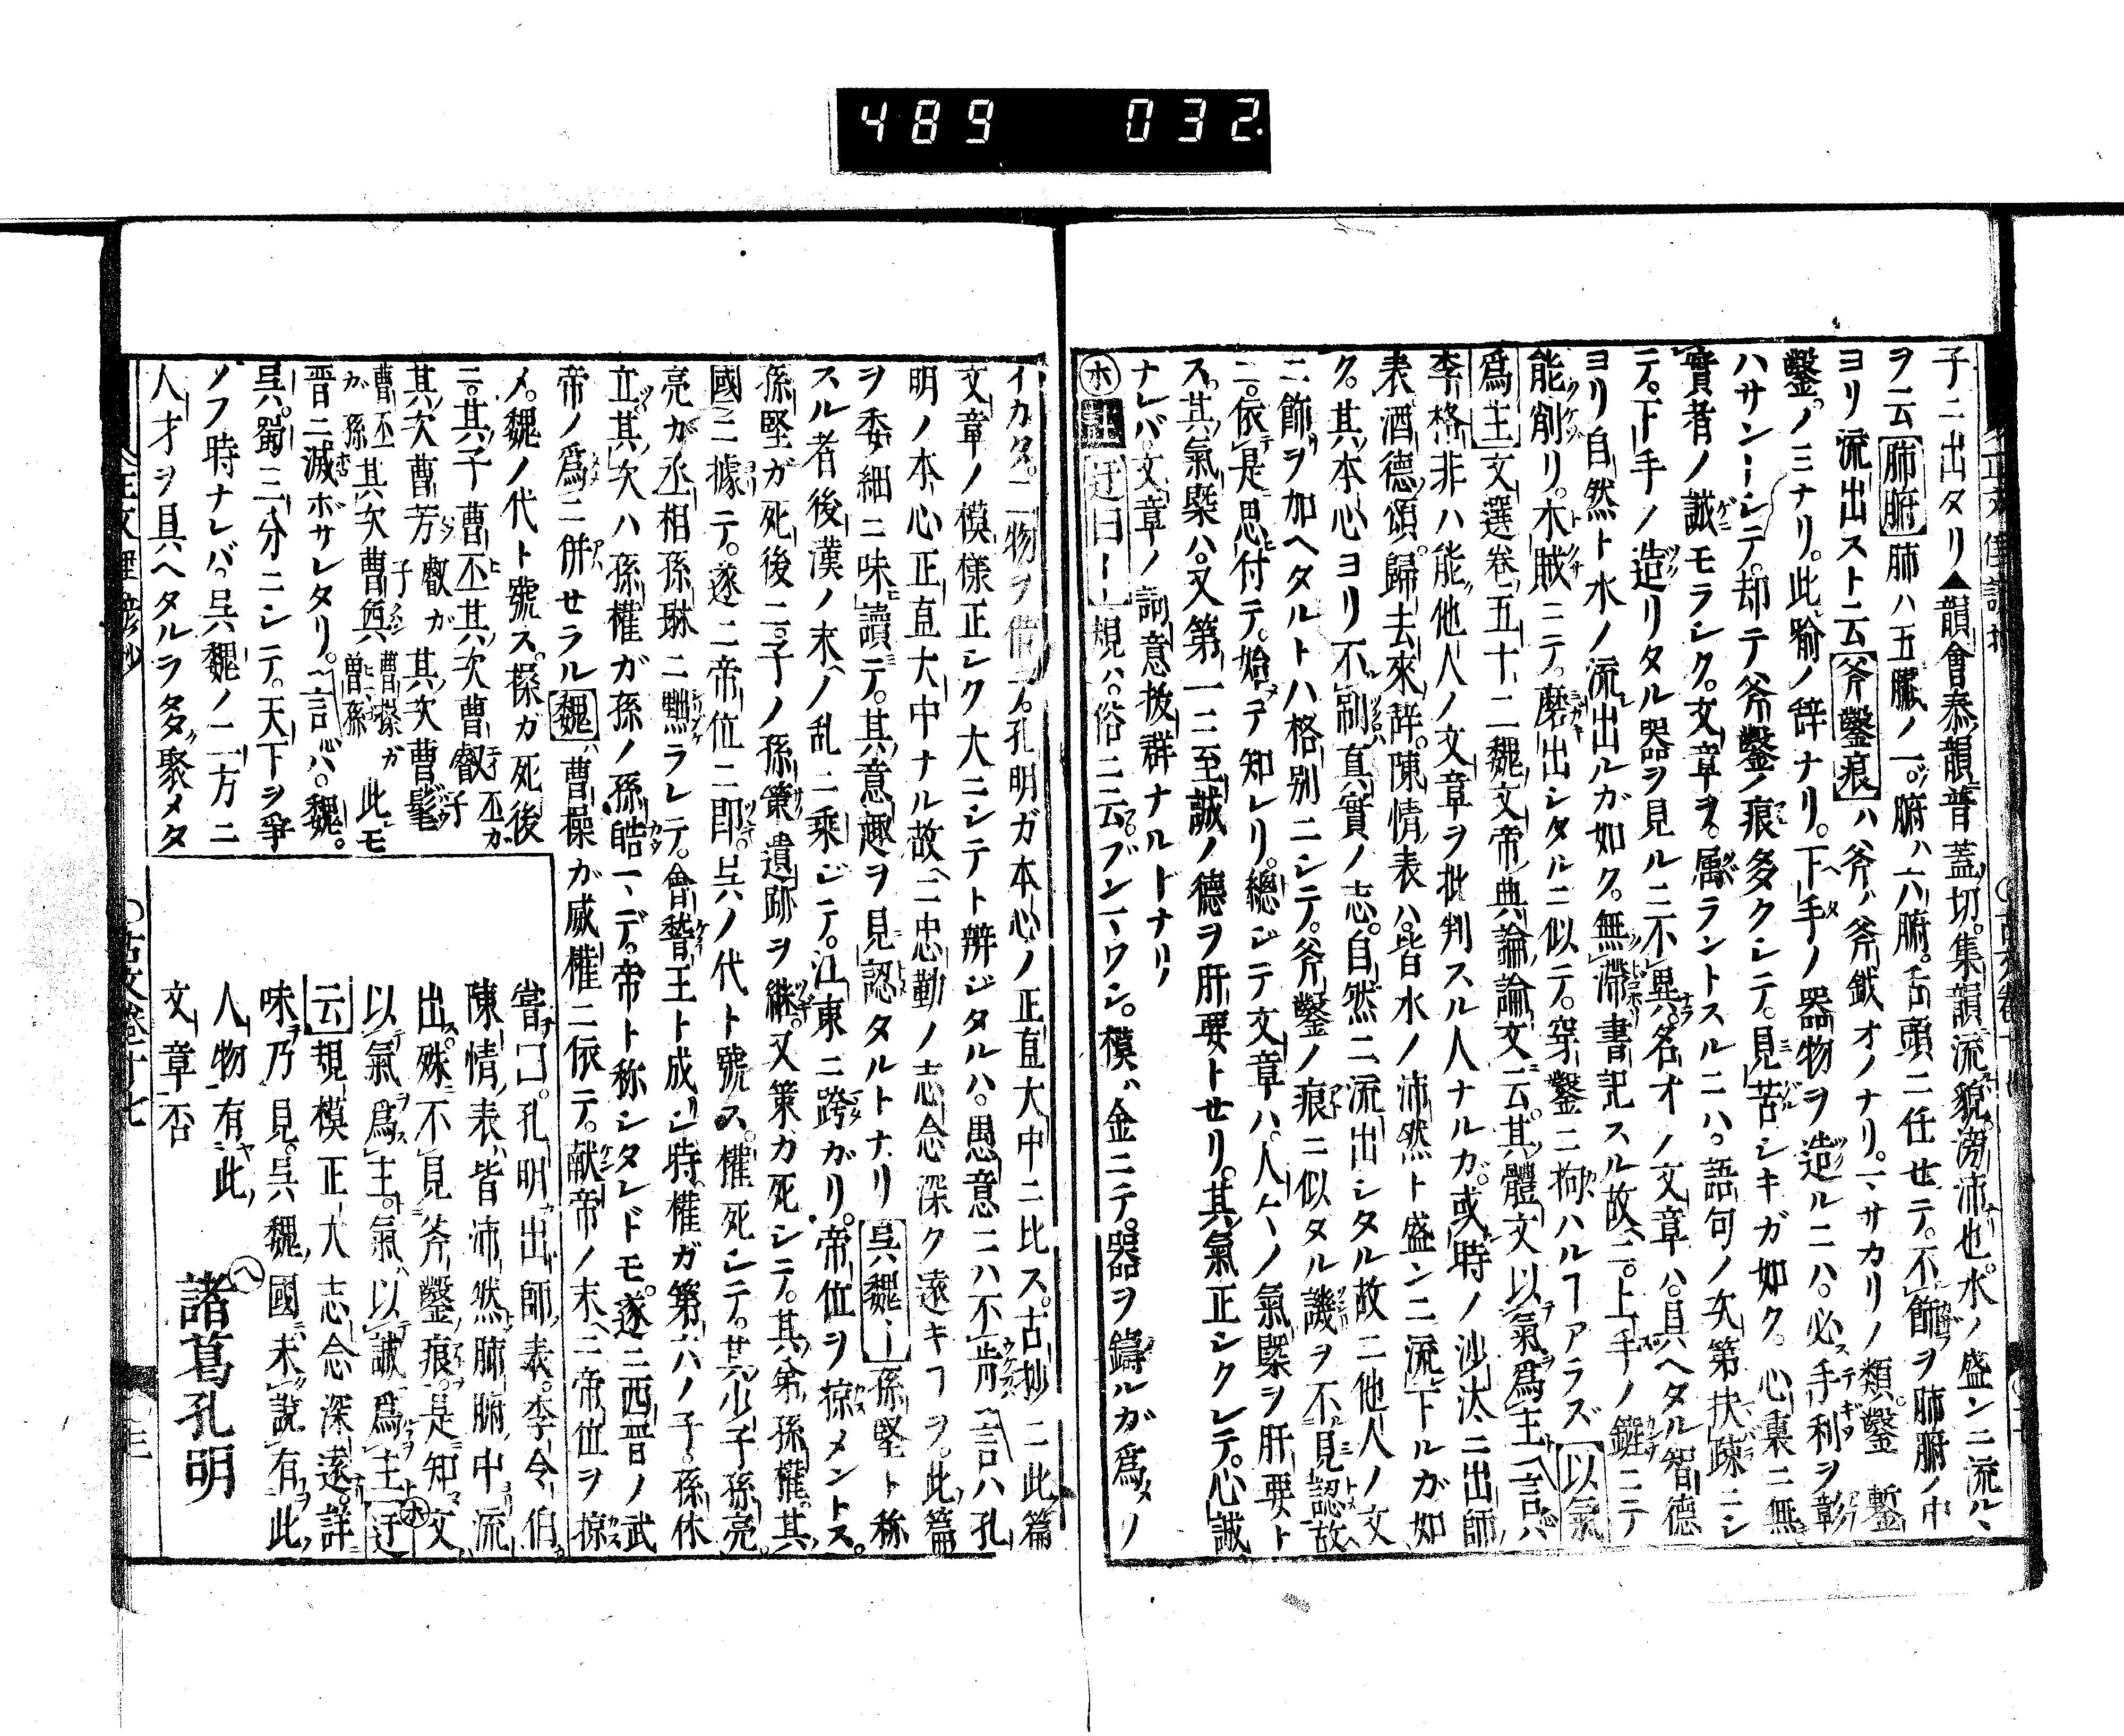 489 032.
子ニ出タリ▲韻會泰韻普蓋切。集韻流貌。滂沛也。水ノ盛ンニ流ルヽ
ヲ云肺腑肺ハ五臟ノ一。腑ハ六腑。舌頭ニ任セテ。不飾ヲ肺腑ノ中
ヨリ流出スト云斧鑿痕ハ斧ハ斧鉞オノナリ。マサカリノ類。鑿 鏨
鑿ノミナリ。此喩ノ辞ナリ。下手ノ器物ヲ造ルニハ。必手利ヲ彰
ハサンーシテ。却テ斧鑿ノ痕多クシテ。見苦シキガ如ク。心裏ニ無
實者ノ誠モラシク。文章ヲ。屬ラントスルニハ。語句ノ次第扶疎ニシ
テ。下手ノ造リタル器ヲ見ルニ不異。名オノ文章ハ。具ヘタル智德
ヨリ自然ト水ノ流出ルガ如ク。無滯書記スル故ニ。上手ノ鏟ニテ
能削リ。木賊ニテ。磨出シタルニ似テ。穿鑿ニ拘ハルヿアラズ以氣
爲主文選卷五十二魏文帝典論論文云。其體文以氣爲主言ハ
李格非ハ能他人ノ文章ヲ批判スル人ナルガ。或時ノ沙汰ニ出師
表酒德頌。歸去來辞。陳情表ハ。皆水ノ沛然ト盛ンニ流下ルガ如
ク。其本心ヨリ不剬眞實ノ志。自然ニ流出シタル故ニ他人ノ文
ニ飾ヲ加ヘタルトハ格別ニシテ。斧鑿ノ痕ニ似タル譏ヲ不見認故
ニ。依是思付テ。始テ知レリ。總ジテ文章ハ。人々ノ氣槩ヲ肝要ト
ス。其氣槩ハ。又第一ニ至誠ノ德ヲ肝要トセリ。其氣正シクレテ。心誠
ナレバ文章ノ詞意拔群ナルトナリ
㋭註迂曰ーー規ハ。俗ニ云ブンマワシ。模ハ金ニテ。器ヲ鑄ルガ爲メノ
イカタ。二物ヲ借テ。孔明ガ本心ノ正直大中ニ比ス。古抄ニ此篇
文章ノ模樣正シク大ニシテト辨ジタルハ。愚意ニハ不肯言ハ孔
明ノ本心正直大中ナル故ニ忠勤ノ志念深ク遠キヿヲ。此篇
ヲ委細ニ味讀テ。其意趣ヲ見認タルトナリ呉魏ー孫堅ト称
スル者後漢ノ末ノ乱ニ乗ジテ。江東ニ跨ガリ。帝位ヲ掠メントス。
孫堅ガ死後ニ。子ノ孫策遺跡ヲ継。又策カ死シテ。其弟孫權。其
國ニ據テ。遂ニ帝位ニ即。呉ノ代ト號ス。權死シテ。其少子孫亮。
亮カ丞相孫琳ニ黜ラレテ。會稽王ト成シ時權ガ第六ノ子。孫休
立其次ハ孫權ガ孫ノ孫皓マデ。帝ト称シタレドモ。遂ニ西晋ノ武
帝ノ爲ニ併セラル魏ハ曹操ガ威權ニ依テ。献帝ノ末ニ帝位ヲ掠
メ。魏ノ代ト號ス。操カ死後
ニ。其子曹丕其次曹叡丕ガ子
其次曹芳叡ガ子其次曹髦
曹丕ガ孫其次曹奐曹操ガ曽孫此モ
晋ニ滅ボサレタリ。言心ハ。魏。
呉。蜀三分ニシテ。天下ヲ爭
ノフ時ナレバ。呉魏ノ二方ニ
人才ヲ具ヘタルヲ多聚メタ
嘗。孔明出師表。李令伯
陳情表。皆沛然肺腑中流
出。殊不見斧鑿痕。是知文
以氣爲主。氣以誠爲主㋭迂
云規模正大志念深遠。詳
味乃見。呉魏國末說有此
人物有此
文章否
㋬諸葛孔明
古文卷十七